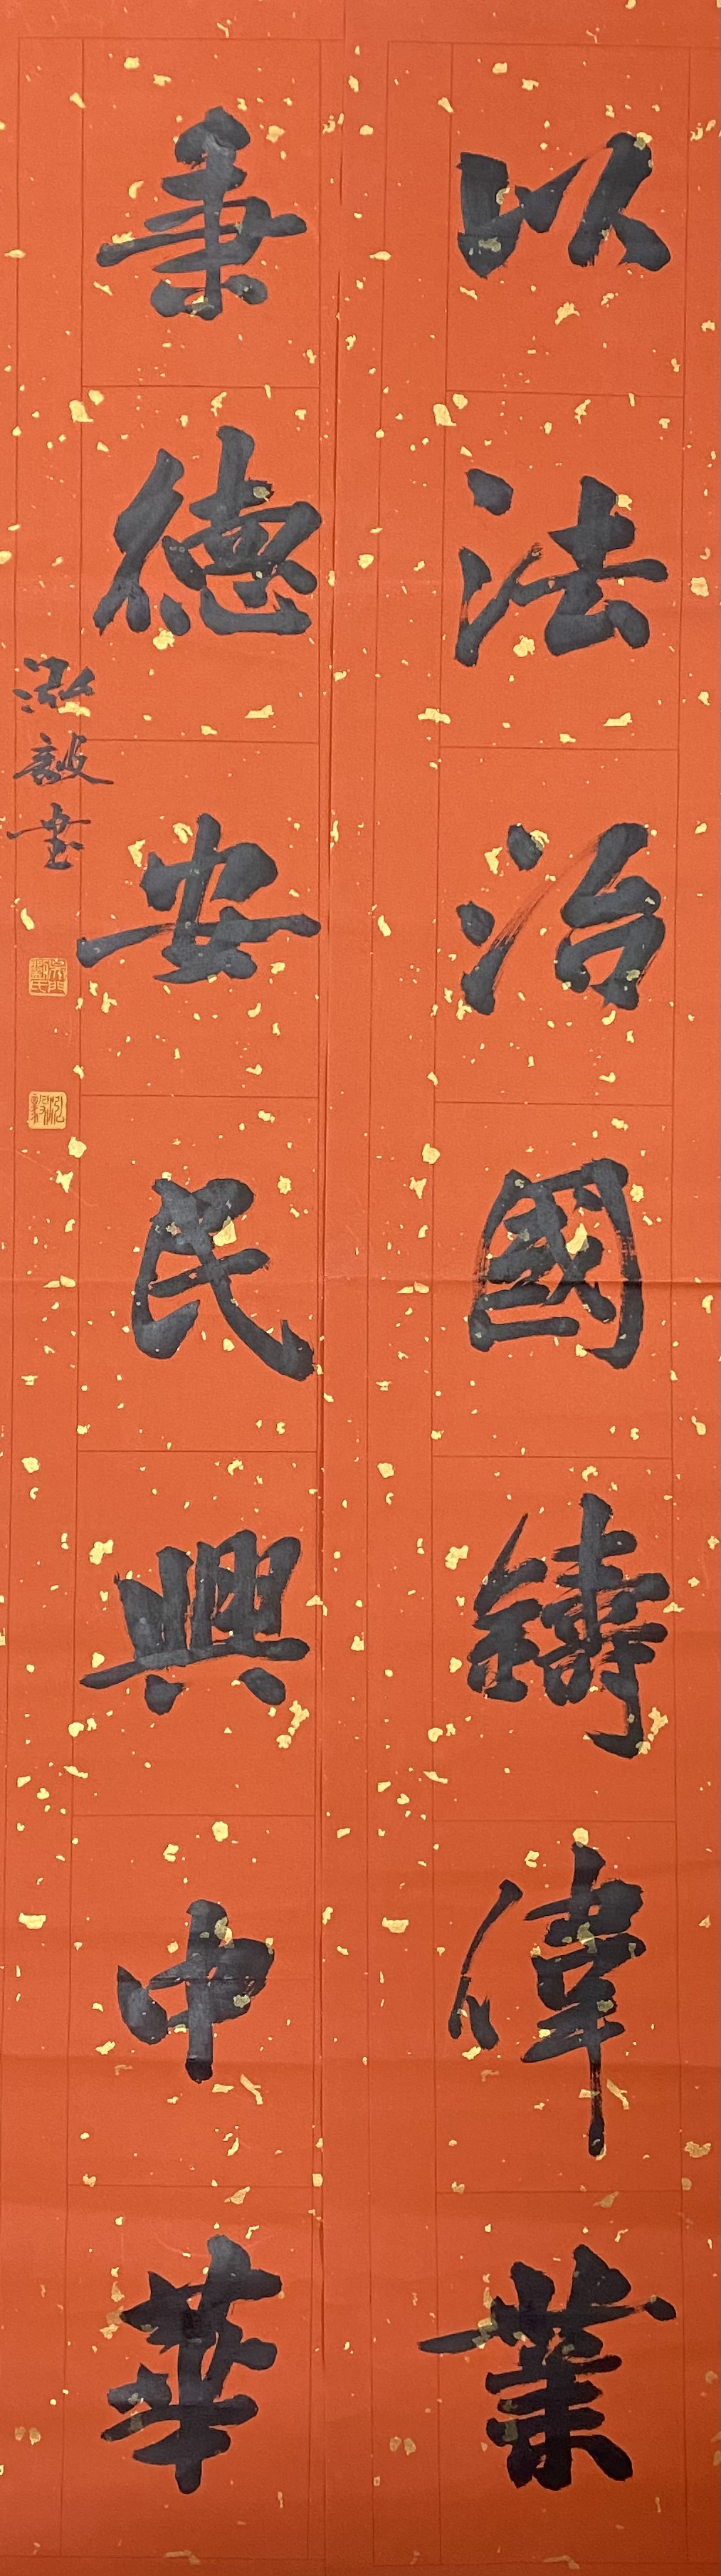 以法治國鑄偉業
秉德安民興中華
泓毅書
泓毅